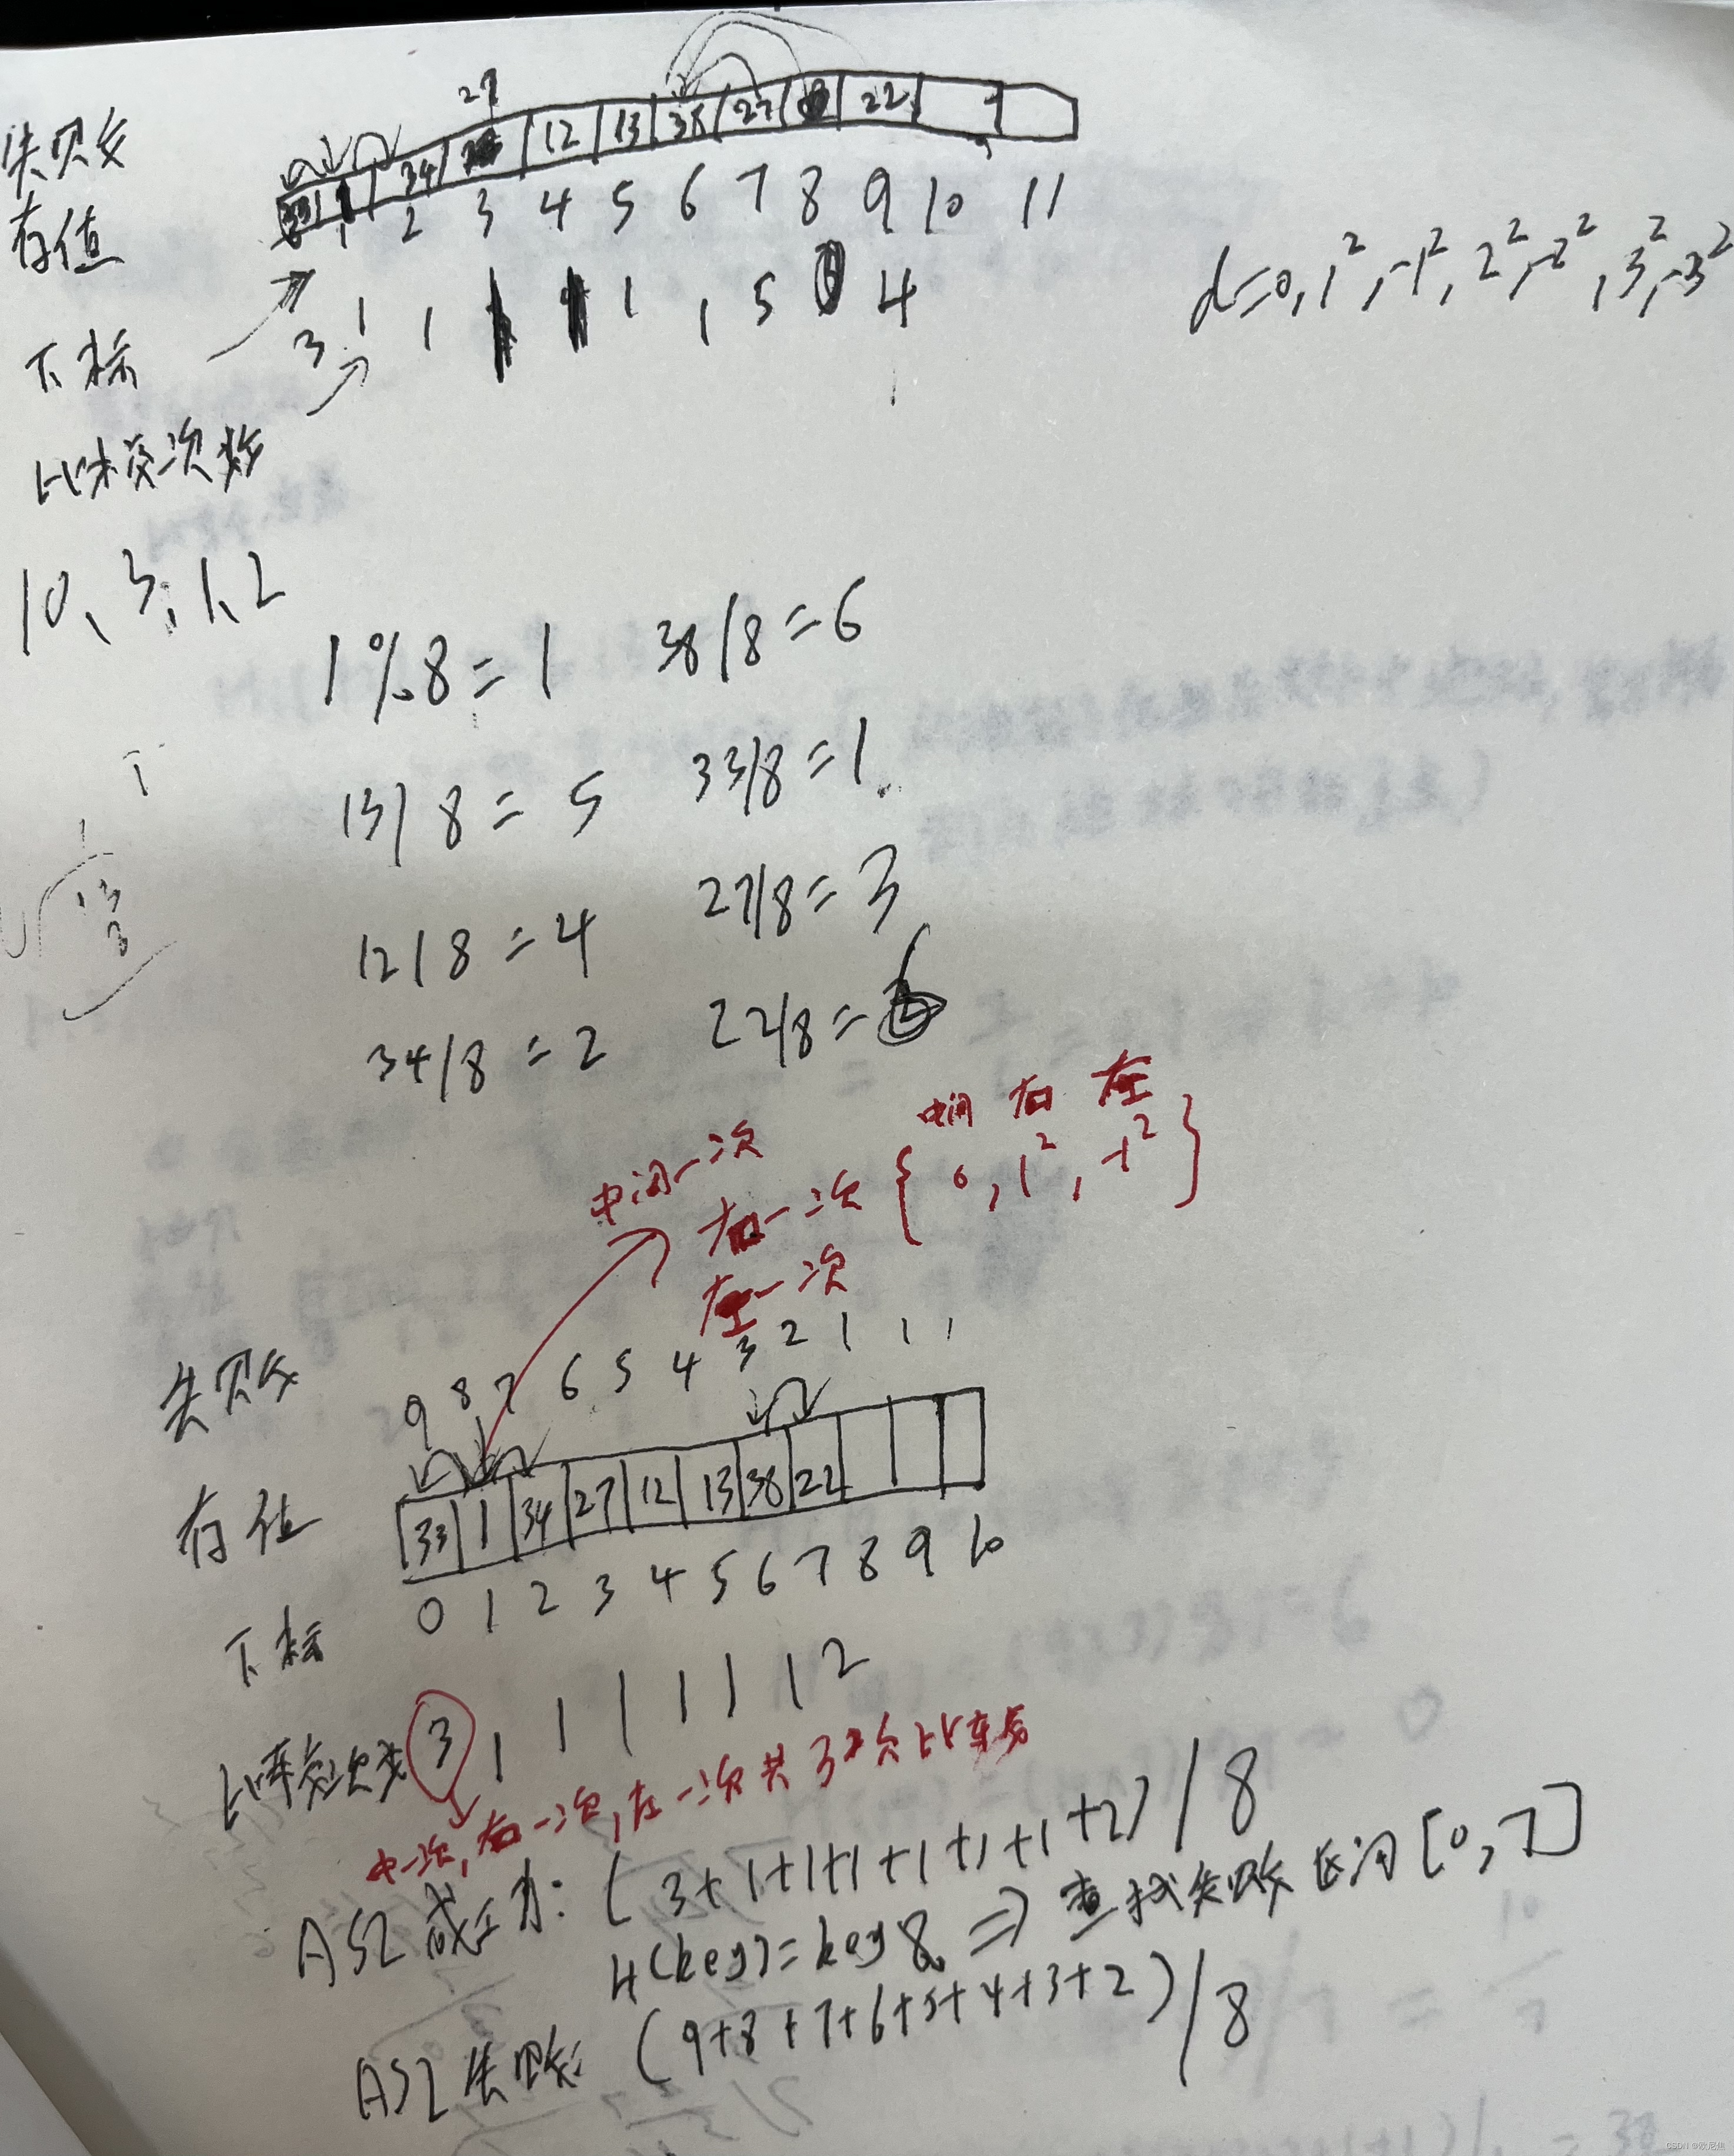 27
失败
34 12 13 38 27 22
存值
0 1 2 3 4 5 6 7 8 9 10 11
下标
3 1 1 1 1 5 4
d=0, 1², -1², 2², -2², 3², -3²
比较次数
10、3、1、2
1%8=1 38/8=6
13/8=5 33/8=1
12/8=4 27/8=3
34/8=2 22/8=6
中间一次
右一次
左一次
中间 右 左
{0, 1², -1²}
失败 9 8 7 6 5 4 3 2 1 1 1
存值 33 1 34 27 12 13 38 22
下标 0 1 2 3 4 5 6 7 8 9 10
比较次数 3 1 1 1 1 1 1 2
中一次,右一次,左一次共3次比较
ASL成功: (3+1+1+1+1+1+1+2)/8
H(key)=key%8 => 查找失败区间[0,7]
ASL失败: (9+8+7+6+5+4+3+2)/8